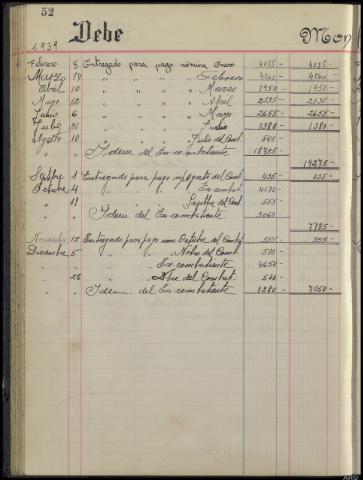 52
1939
Debe
Mon
Febrero 8 Entregado para pago nómina Enero 4035- 4035-
Marzo 14 " " " " Febrero 4260- 4260-
Abril 10 " " " " Marzo 1950- 1950-
Mayo 12 " " " " Abril 2535- 2535-
Junio 6 " " " " Mayo 2655- 2655-
Julio 31 " " " " Junio 1380- 1380-
Agosto 10 " " " " Julio del Comt. 540-
" " Idem del Ex-combatiente 18735-
19275-
Sepbre 1 Entregado para pago n/ Agosto del Comt. 435- 435-
Octubre 4 " " " Ex-combat. 4170-
" 11 " " " Sepbre del Comt 555-
" " Idem del Ex-combatiente 3060-
7785-
Noviembre 15 Entregado para pago nom. Octubre del Combte 555- 555-
Diciembre 5 " " " Novbre del Comt. 510-
" " " Ex-combatiente 4650-
" 26 " " Dbre del Combat. 510-
" " Idem del Ex-combatiente 1380- 7050-